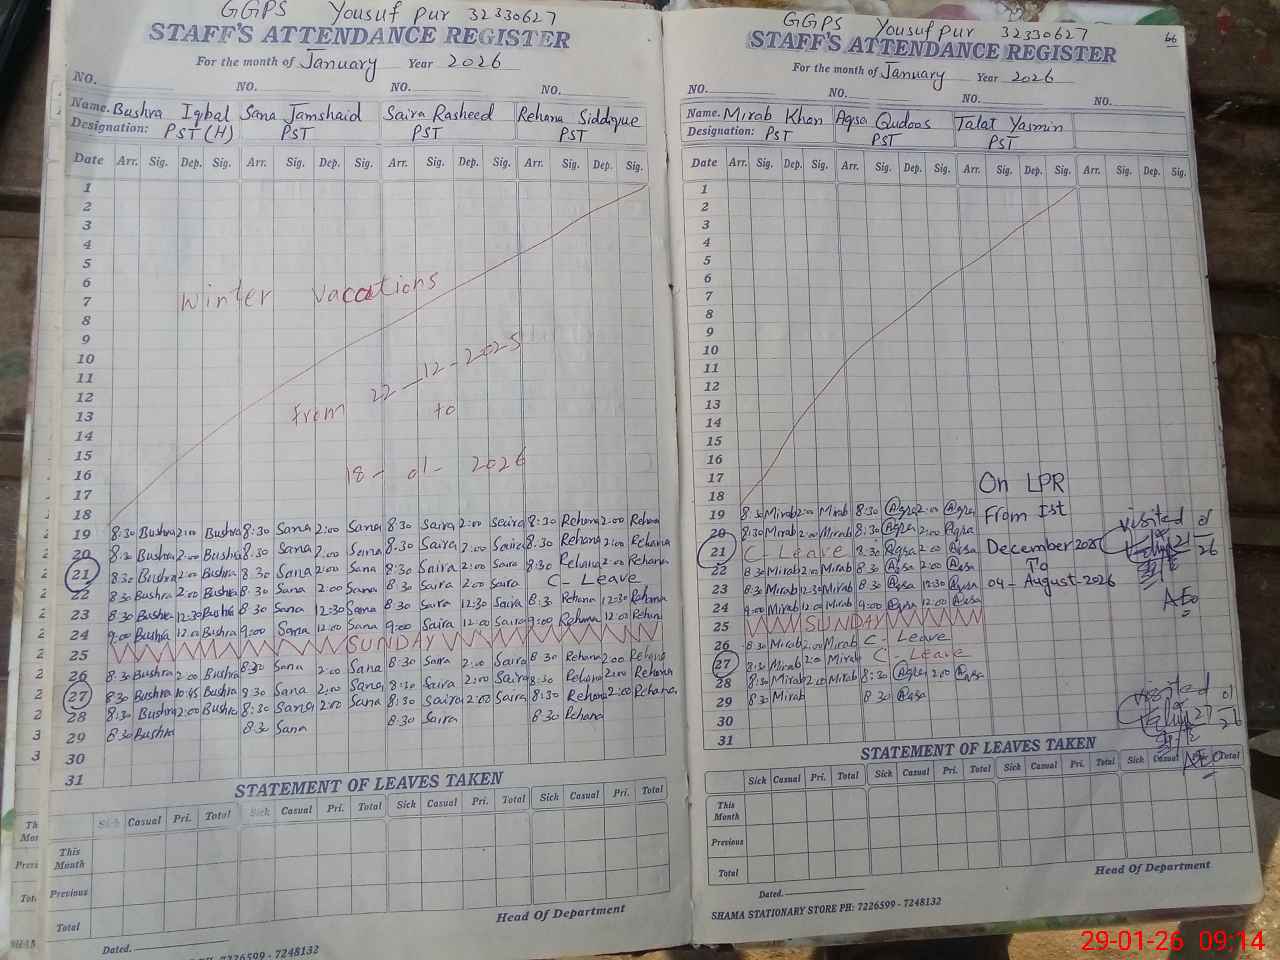 GGPS Yousuf Pur 32330627
STAFF'S ATTENDANCE REGISTER
For the month of January Year 2026
NO. NO. NO. NO.
Name. Bushra Iqbal Sana Jamshaid Saira Rasheed Rehana Siddique
Designation: PST (H) PST PST PST
Date Arr. Sig. Dep. Sig. Arr. Sig. Dep. Sig. Arr. Sig. Dep. Sig. Arr. Sig. Dep. Sig.
1
2
3
4
5
6
Winter Vacations
7
8
9
10
11
From 22-12-2025
12
13
to
14
15
16
18-01-2026
17
18
19 8:30 Bushra 2:00 Bushra 8:30 Sana 2:00 Sana 8:30 Saira 2:00 Saira 8:30 Rehana 2:00 Rehana
20 8:30 Bushra 2:00 Bushra 8:30 Sana 2:00 Sana 8:30 Saira 2:00 Saira 8:30 Rehana 2:00 Rehana
21 8:30 Bushra 2:00 Bushra 8:30 Sana 2:00 Sana 8:30 Saira 2:00 Saira 8:30 Rehana 2:00 Rehana
22 8:30 Bushra 2:00 Bushra 8:30 Sana 2:00 Sana 8:30 Saira 2:00 Saira C-Leave
23 8:30 Bushra 12:30 Bushra 8:30 Sana 12:30 Sana 8:30 Saira 12:30 Saira 8:30 Rehana 12:30 Rehana
24 9:00 Bushra 12:00 Bushra 9:00 Sana 12:00 Sana 9:00 Saira 12:00 Saira 9:00 Rehana 12:00 Rehana
25 SUNDAY
26 8:30 Bushra 2:00 Bushra 8:30 Sana 2:00 Sana 8:30 Saira 2:00 Saira 8:30 Rehana 2:00 Rehana
27 8:30 Bushra 10:45 Bushra 8:30 Sana 2:00 Sana 8:30 Saira 2:00 Saira 8:30 Rehana 2:00 Rehana
28 8:30 Bushra 2:00 Bushra 8:30 Sana 2:00 Sana 8:30 Saira 2:00 Saira 8:30 Rehana 2:00 Rehana
29 8:30 Bushra 8:30 Sana 8:30 Saira 8:30 Rehana
30
31
STATEMENT OF LEAVES TAKEN
Sick Casual Pri. Total Sick Casual Pri. Total Sick Casual Pri. Total Sick Casual Pri. Total
This Month
Previous
Total
Head Of Department
Dated.
7226599 - 7248132
GGPS Yousuf Pur 32330627
66
STAFF'S ATTENDANCE REGISTER
For the month of January Year 2026
NO. NO. NO. NO.
Name. Mirab Khan Aqsa Qudoos Talat Yasmin
Designation: PST PST PST
Date Arr. Sig. Dep. Sig. Arr. Sig. Dep. Sig. Arr. Sig. Dep. Sig. Arr. Sig. Dep. Sig.
1
2
3
4
5
6
7
8
9
10
11
12
13
14
15
16
17
18
On LPR
19 8:30 Mirab 2:00 Mirab 8:30 Aqsa 2:00 Aqsa
From Ist
20 8:30 Mirab 2:00 Mirab 8:30 Aqsa 2:00 Aqsa
visited
21 C-Leave 8:30 Aqsa 2:00 Aqsa
December 2025
21-01-26
22 8:30 Mirab 2:00 Mirab 8:30 Aqsa 2:00 Aqsa
To
23 8:30 Mirab 12:30 Mirab 8:30 Aqsa 12:30 Aqsa
04-August-2026
24 9:00 Mirab 12:00 Mirab 9:00 Aqsa 12:00 Aqsa
AEO
25 SUNDAY
26 8:30 Mirab 2:00 Mirab C-Leave
27 8:30 Mirab 2:00 Mirab C-Leave
28 8:30 Mirab 2:00 Mirab 8:30 Aqsa 2:00 Aqsa
29 8:30 Mirab 8:30 Aqsa
visited
27-01-26
30
31
AEO
STATEMENT OF LEAVES TAKEN
Sick Casual Pri. Total Sick Casual Pri. Total Sick Casual Pri. Total Sick Casual Total
This Month
Previous
Total
Head Of Department
Dated.
SHAMA STATIONARY STORE PH: 7226599 - 7248132
29-01-26 09:14